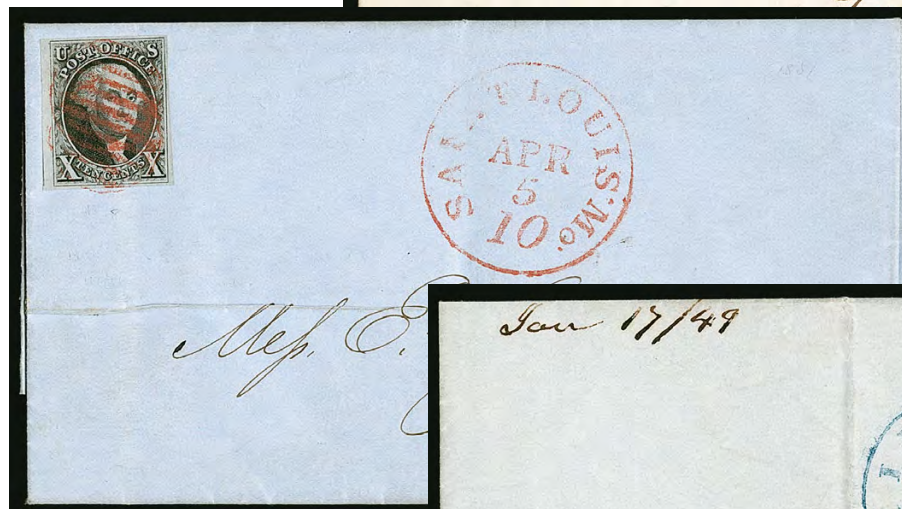 U S
POST OFFICE
X TEN CENTS X
SAINT LOUIS Mo.
APR
5
10
1851
Mess. E.
Jan 17/49